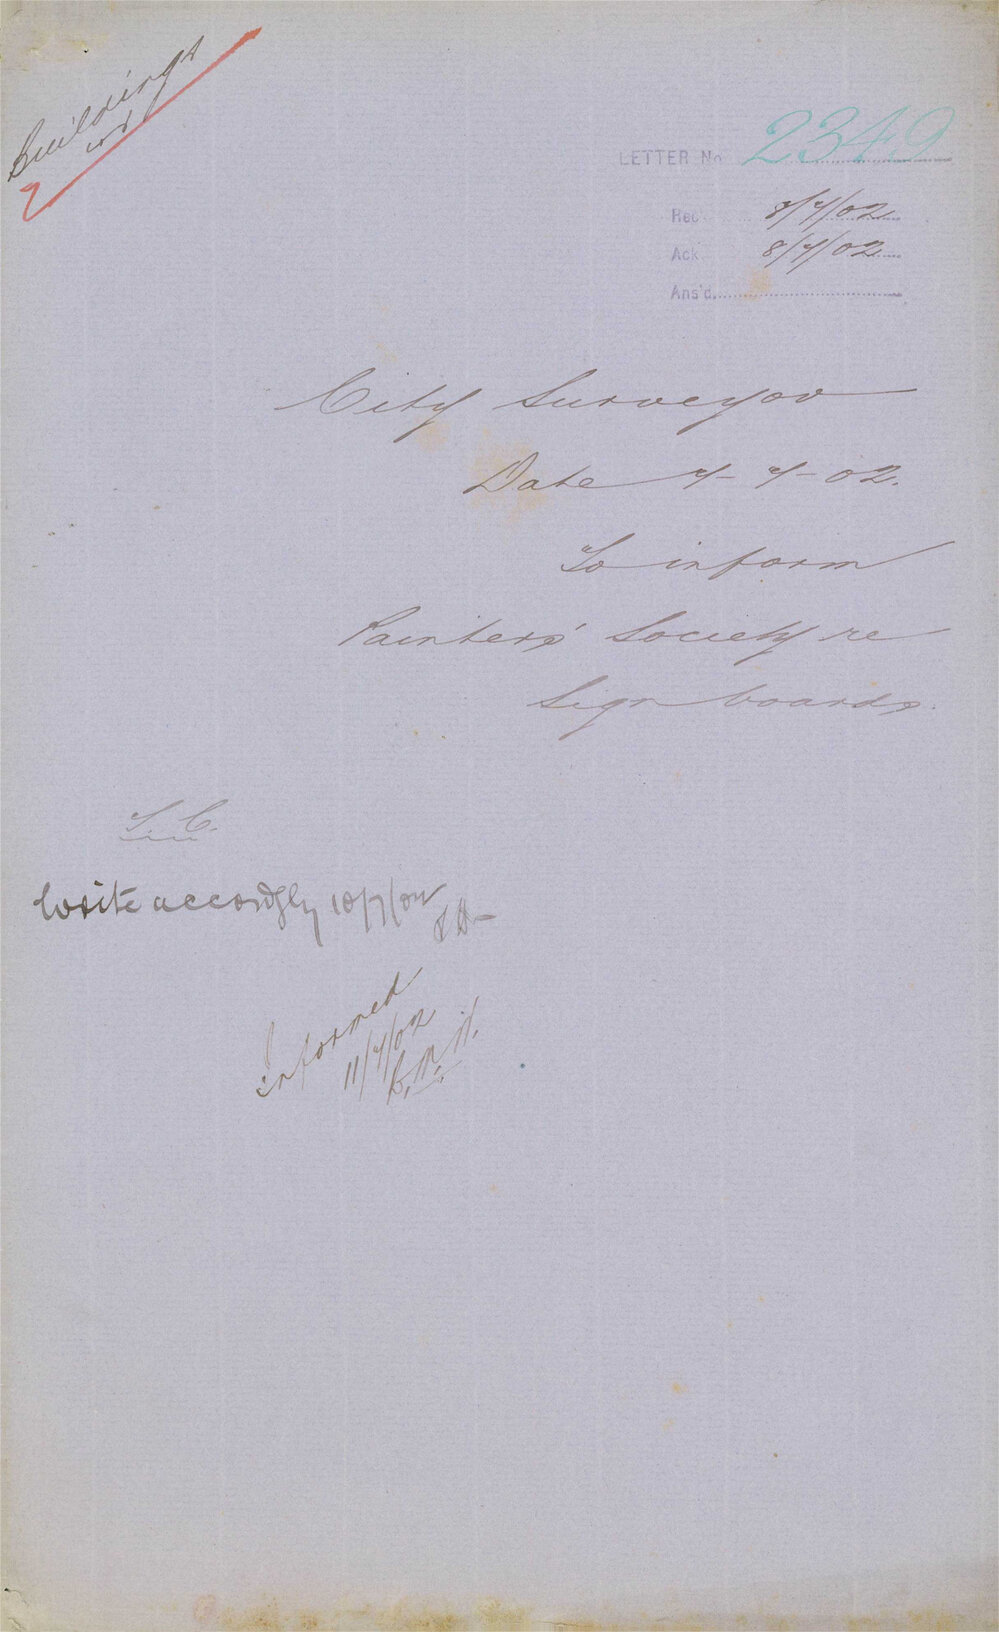 Buildings
LETTER No 2349
Rec 8/7/02
Ack 8/7/02
Ans'd.
City Surveyor
Date 7-7-02.
To inform
Painters' Society re
Sign boards.
Write accordgly 10/7/02
Informed
11/7/02